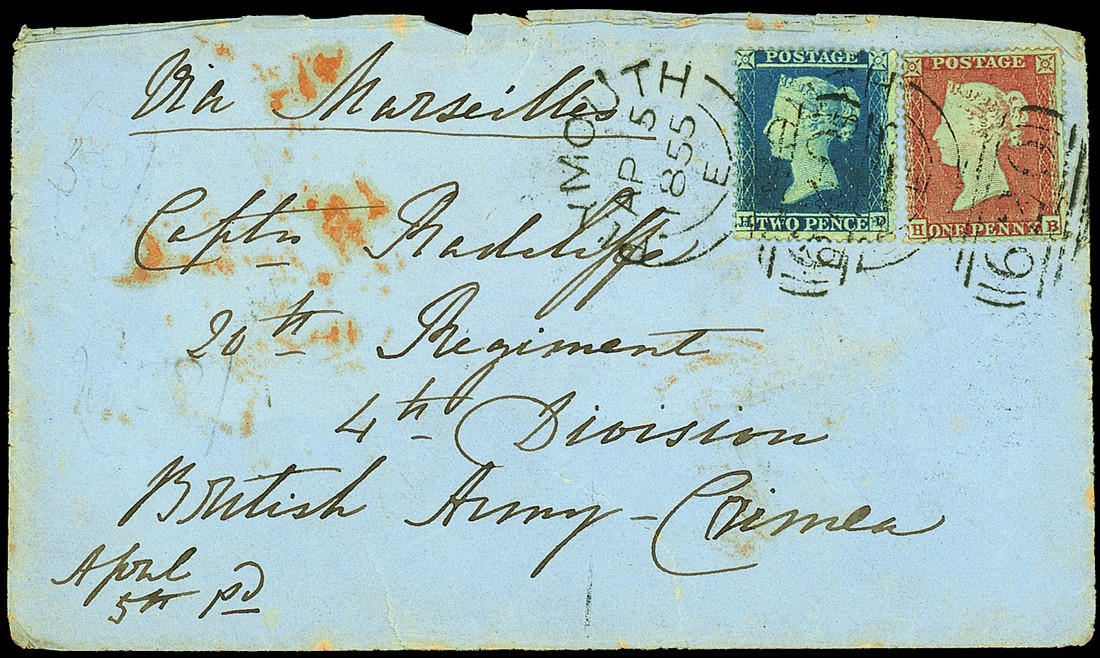 Via Marseilles
Captn Radcliffe
20th Regiment
4th Division
British Army - Crimea
April
5th pd
YMOUTH
AP 5
1855
E
POSTAGE
H TWO PENCE D
POSTAGE
H ONE PENNY B